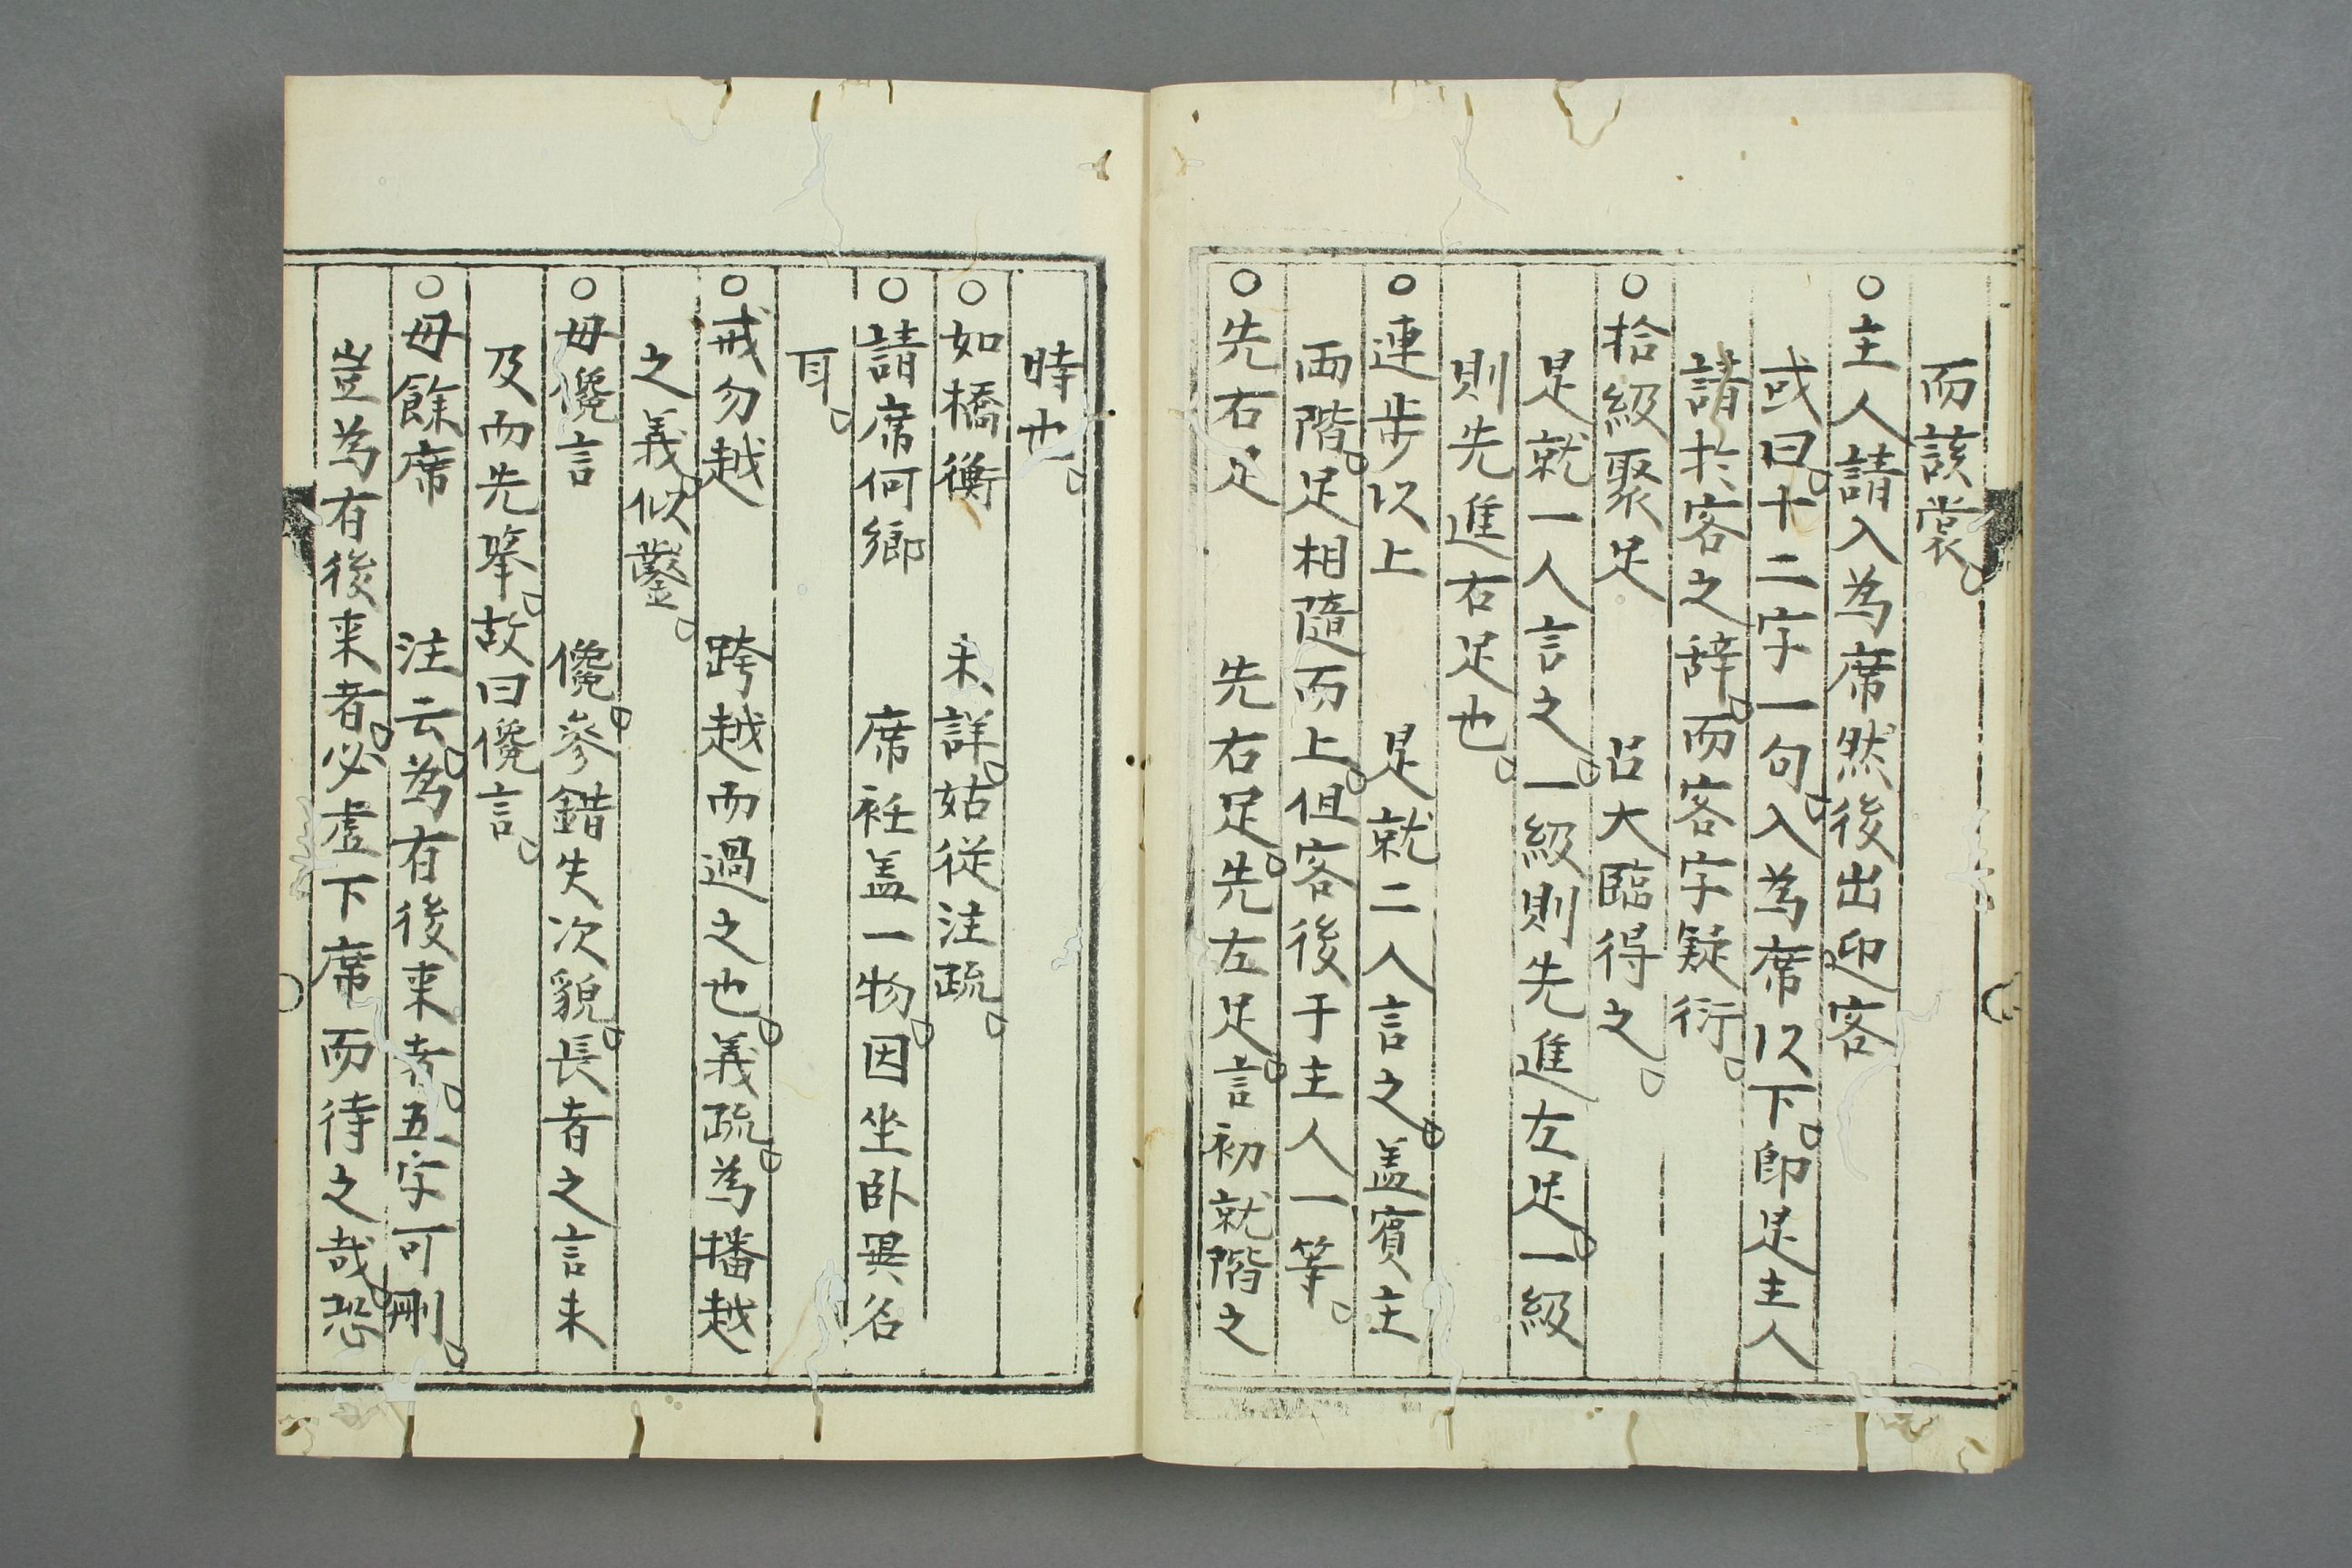 而該裳。
○主人請入為席然後出迎客
或曰。十二字一句。入為席以下。即是主人
請於客之辞。而客字疑衍。
○拾級聚足　呂大臨得之。
是就一人言之。一級則先進左足。一級
則先進右足也。
○連步以上　是就二人言之。盖賓主
両階。足相隨而上。但客後于主人一等。
○先右足　先右足。先左足。言初就階之
時也。
○如橋衡　未詳。姑従注疏。
○請席何鄉　席衽盖一物。因坐臥異名
耳。
○戒勿越　跨越而過之也。義疏。為播越
之義。似鑿。
○毋儳言　儳。參錯失次貌。長者之言未
及而先挙。故曰儳言。
○毋餘席　注云。為有後来者。五字可刪。
豈為有後来者。必虚下席而待之哉。恐